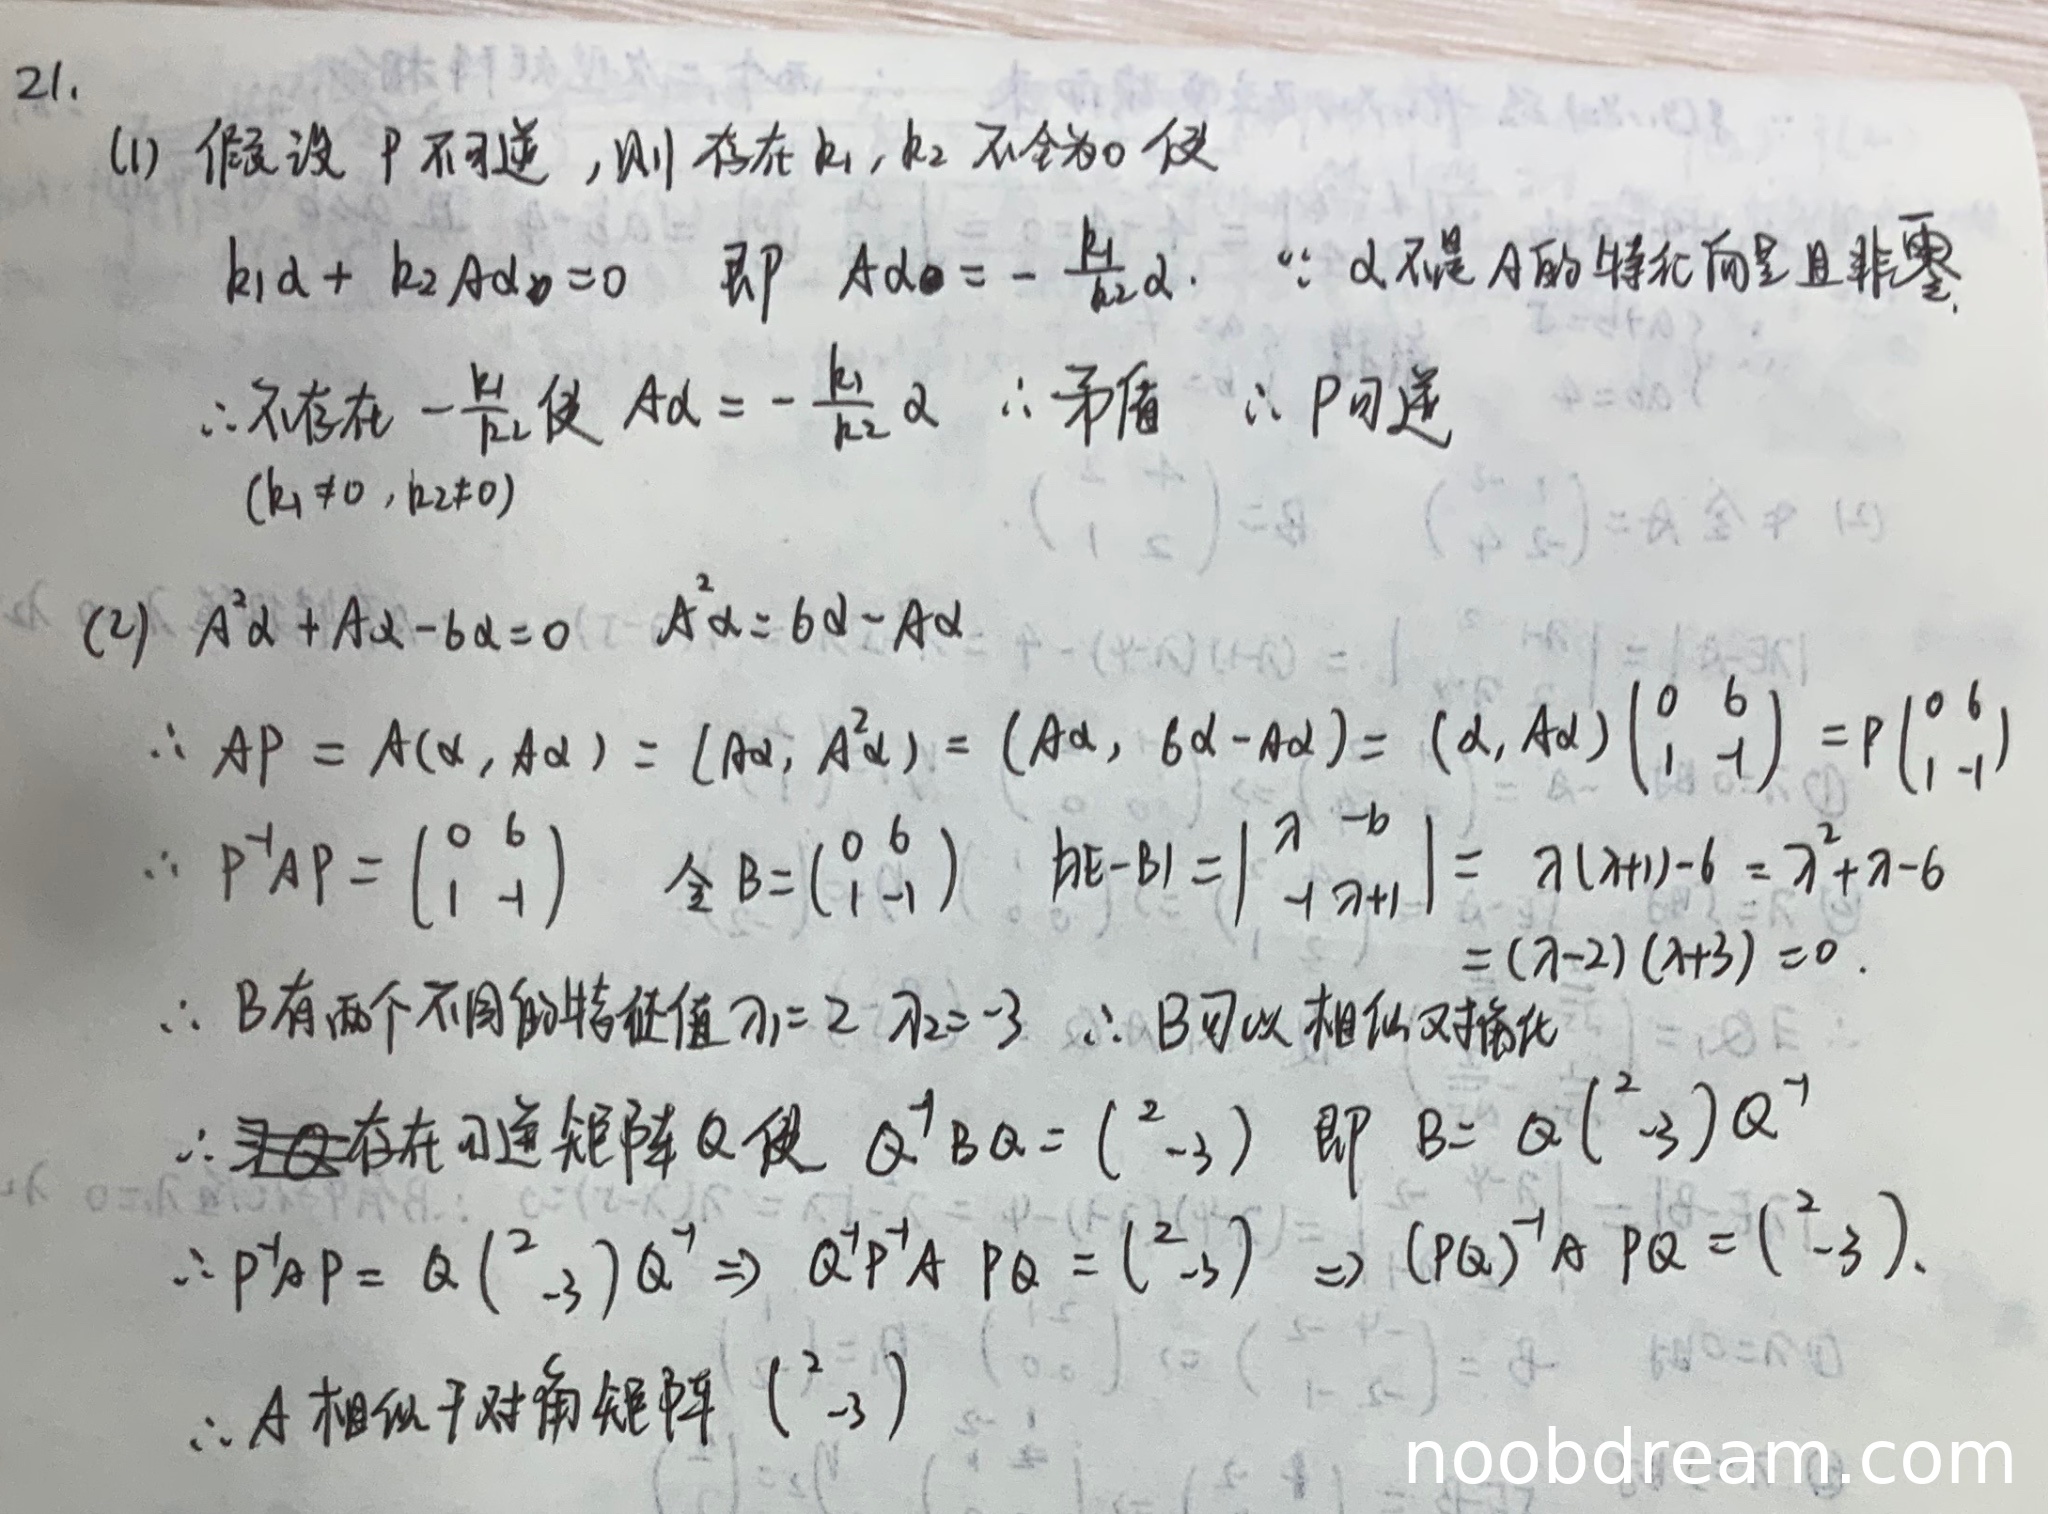 21.
(1) 假设 P不可逆,则存在k₁,k₂不全为0使
k₁α + k₂Aα=0 即 Aα = -k₁/k₂ α. ∵ α不是A的特征向量且非零.
∴不存在 -k₁/k₂ 使 Aα = -k₁/k₂ α ∴矛盾 ∴ P可逆
(k₁≠0,k₂≠0)
(2) A²α+Aα-6α=0 A²α=6α-Aα
∴ AP = A(α,Aα) = (Aα,A²α) = (Aα, 6α-Aα) = (α,Aα)(0 6; 1 -1) = P(0 6; 1 -1)
∴ P⁻¹AP = (0 6; 1 -1) 令B=(0 6; 1 -1) |λE-B| = |λ -6; -1 λ+1| = λ(λ+1)-6 = λ²+λ-6
=(λ-2)(λ+3)=0.
∴ B有两个不同的特征值λ₁=2 λ₂=-3 ∴ B可以相似对角化
∴ 存在可逆矩阵Q使 Q⁻¹BQ = (2 -3) 即 B= Q(2 -3)Q⁻¹
∴ P⁻¹AP = Q(2 -3)Q⁻¹ ⇒ Q⁻¹P⁻¹A PQ = (2 -3) ⇒ (PQ)⁻¹A PQ = (2 -3).
∴ A相似于对角矩阵 (2 -3)
noobdream.com